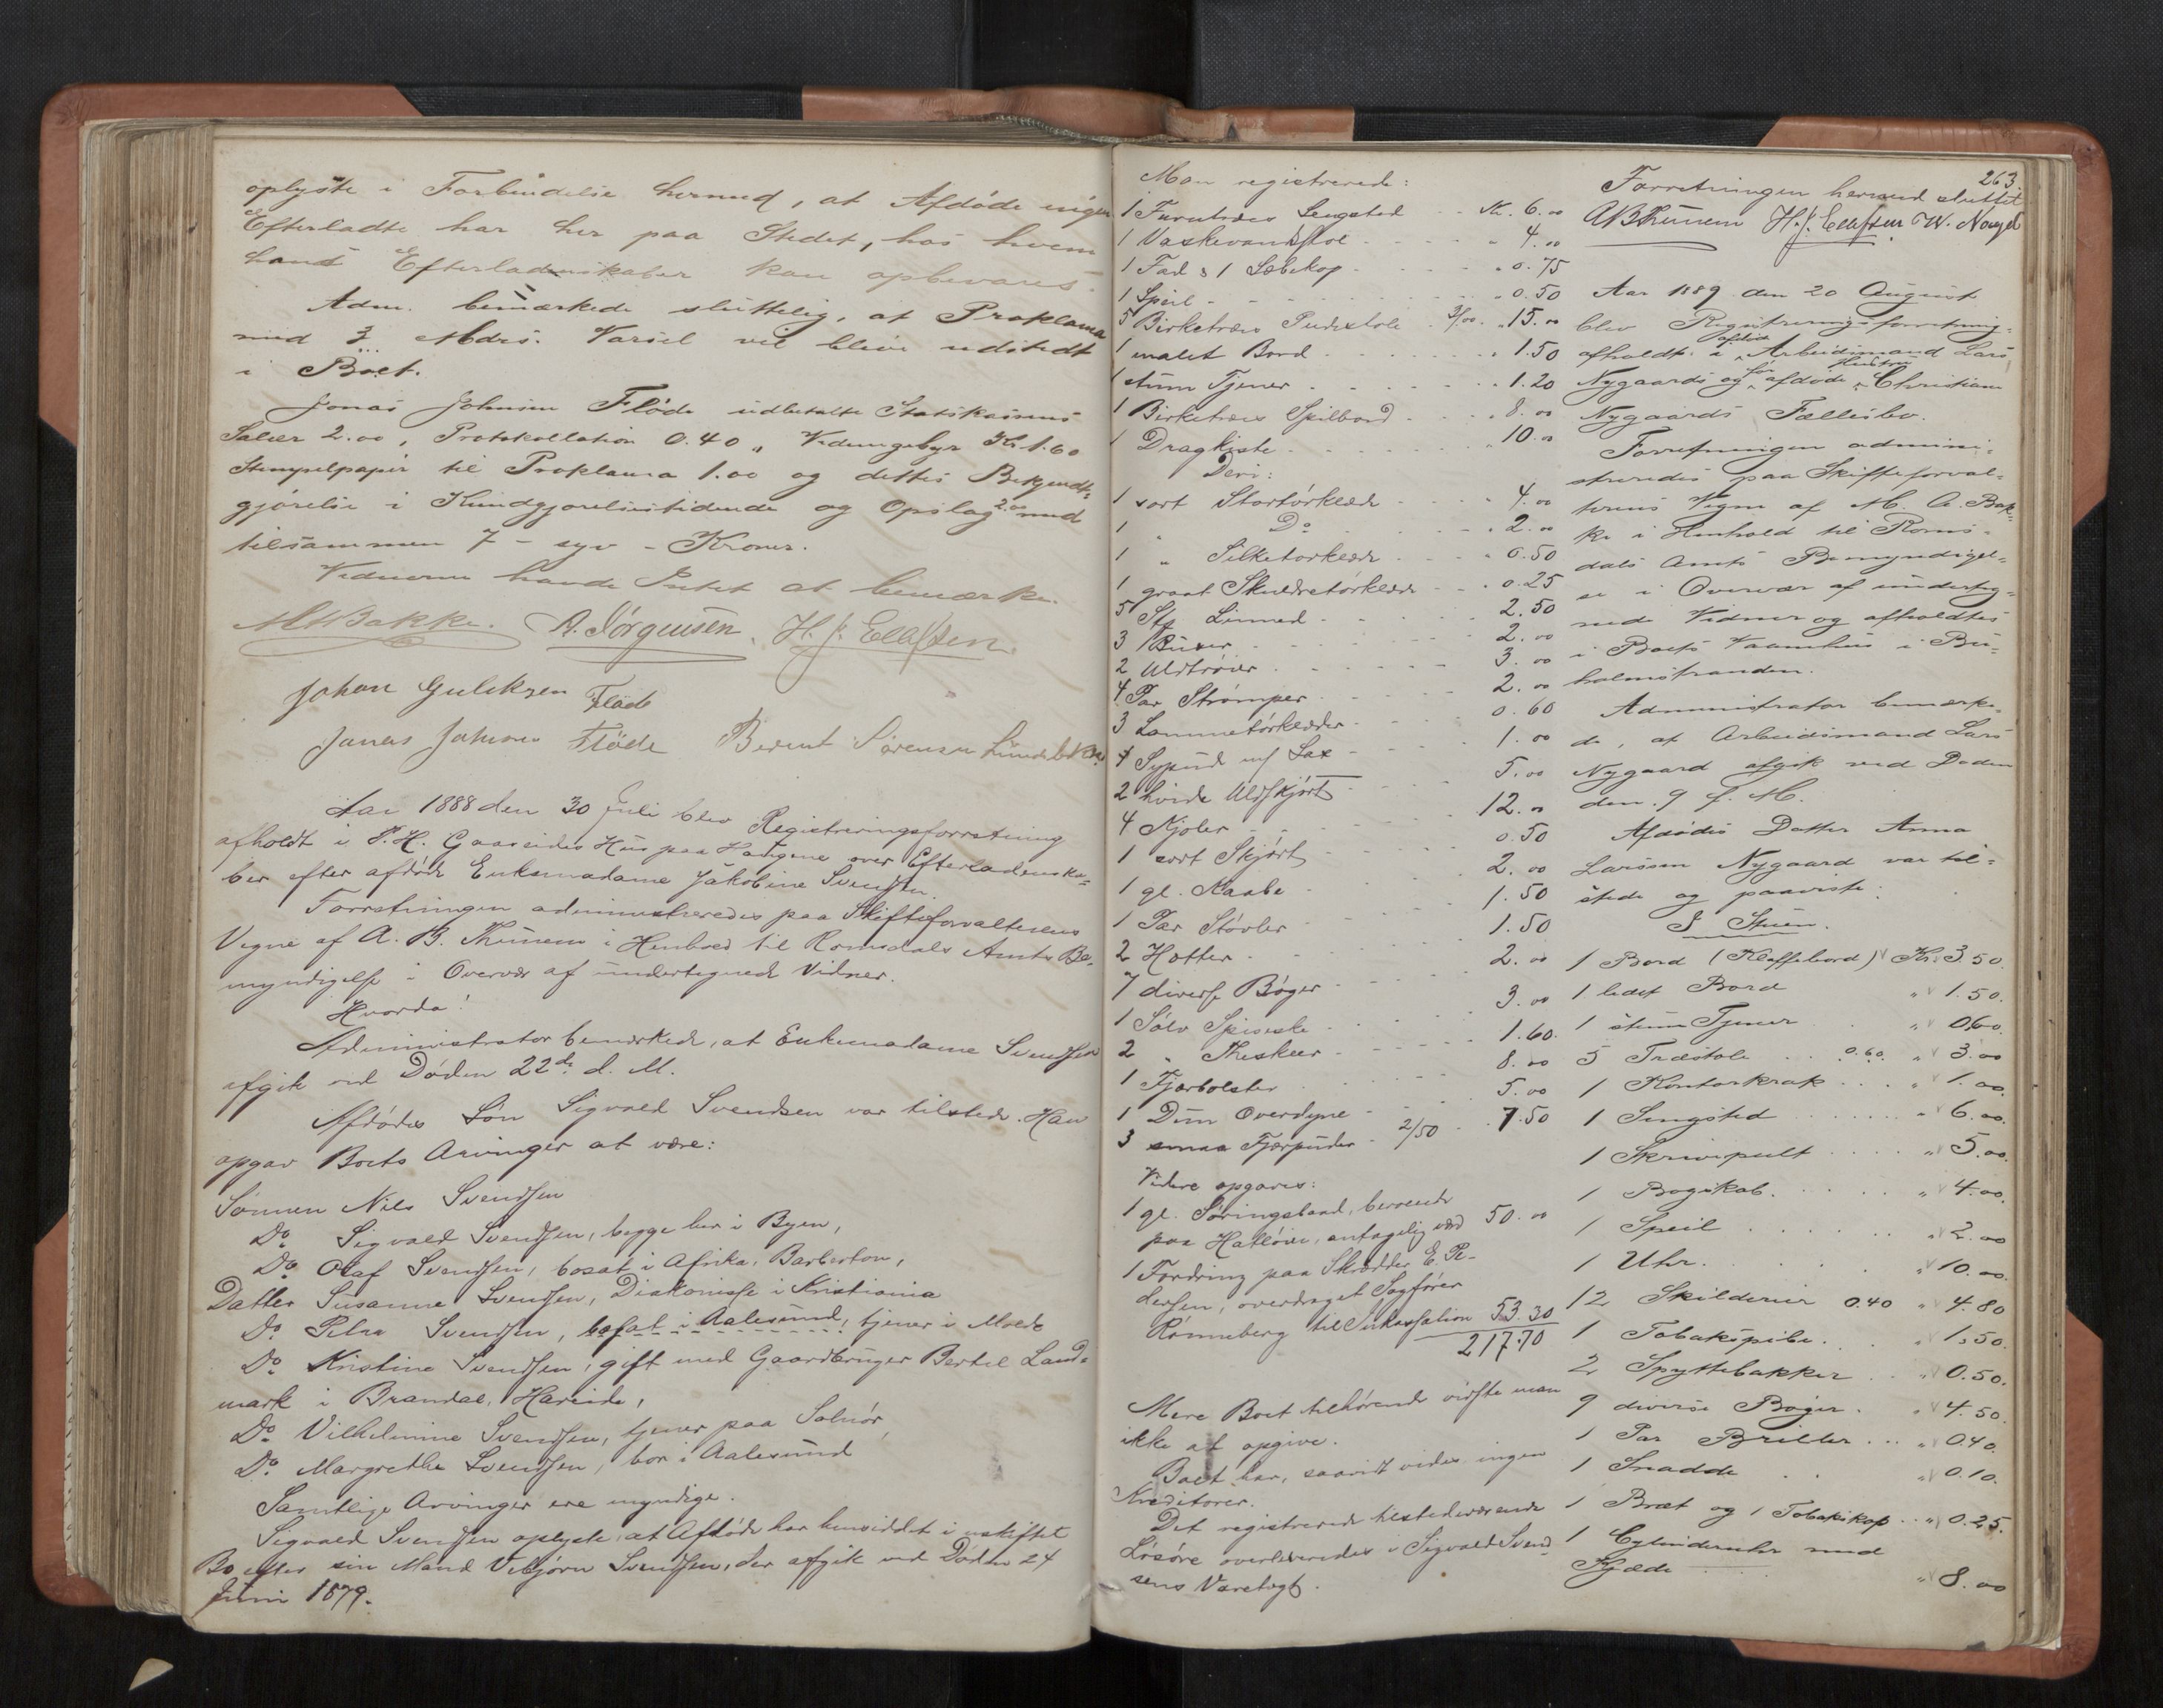 oplyste i Forbindelse hermed, at Afdøde ingen
Efterladte har her paa Stedet, hos hvem
hans Efterladenskaber kan opbevares.
Adm. bemærkede sluttelig, at Proklama
med 3 Mdrs. Varsel vil blive udstedt
i Boet.
Jonas Johnsen Fløde udbetalte Statskassens
Salær 2.00, Protokollation 0.40 „ Vidnegebyr Kr. 1.60
Stempelpapir til Proklama 1.00 og dettes Bekjendt-
gjørelse i Kundgjørelsestidende og Opslag 2.00 med
tilsammen 7 - syv - Kroner.
Vidnerne havde Intet at bemærke.
M A Bakke. A. Jørgensen. H. J. Ellefsen.
Johan Guliksen Fløde
Jonas Johnsen Fløde Berent Sørensen
Aar 1888 den 30 Juli blev Registreringsforretning
afholdt i P. H. Gaaseides Hus paa Haugene over Efterladenska-
ber efter afdøde Enkemadame Jakobine Svendsen
Forretningen administreredes paa Skifteforvalterens
Vegne af A. B. Thunem i Henhold til Romsdals Amts Be-
myndigelse i Overvær af undertegnede Vidner.
Hvorda!
Administrator bemærkede, at Enkemadame Svendsen
afgik ved Døden 22de d. M.
Afdødes Søn Sigvald Svendsen var tilstede. Han
opgav Boets Arvinger at være:
Sønnen Nils Svendsen
Do Sigvald Svendsen, begge her i Byen,
Do Olaf Svendsen, bosat i Afrika, Barberton,
Datter Susanne Svendsen, Diakonisse i Kristiania
Do Petra Svendsen, bosat i Aalesund, tjener i Molde
Do Kristine Svendsen, gift med Gaardbruger Bertel Land-
mark i Brandal, Hareide,
Do Vilhelmine Svendsen, tjener paa Solnør,
Do Margrethe Svendsen, bor i Aalesund
Samtlige Arvinger ere myndige.
Sigvald Svendsen oplyste, at Afdøde har hensiddet i uskiftet
Bo efter sin Mand Vebjørn Svendsen, der afgik ved Døden 24
Juni 1879.
Man registrerede:
1 Furutræes Sengsted Kr. 6.00
1 Vaskevandstol „ 4.00
1 Fad & 1 Sæbekop „ 0.75
1 Speil „ 0.50
5 Birketræes Pudestole 3/00 „ 15.00
1 malet Bord „ 1.50
1 stum Tjener „ 1.20
1 Birketræes Spilbord „ 8.00
1 Dragkiste „ 10.00
Deri:
1 sort Stortørklæde „ 4.00
1 „ Do „ 2.00
1 „ Silketørklæde „ 0.50
1 graat Skuldretørklæde „ 0.25
5 Stk Linned 2.50
3 Buxer 2.00
2 Uldtrøier 3.00
4 Par Strømper 2.00
3 Lommetørklæder 0.60
1 Sypude m/ Sax 1.00
2 hvide Uldskjørt 5.00
4 Kjoler 12.00
1 sort Skjørt 0.50
1 gl. Kaabe 2.00
1 Par Støvler 1.50
2 Hatter 1.50
7 diverse Bøger 2.00
1 Sølv Spiseske 3.00
2 „ Theskeer 1.60.
1 Fjærbolster 8.00
1 Dun Overdyne 5.00
3 smaa Fjærpuder 2/50 7.50
Videre opgaves:
1 gl. Føringsbaad, beroende
paa Hatløen, antagelig værd 50.00
1 Fordring paa Skrædder E. Pe-
dersen, overdraget Sagfører
Rønneberg til Inkassation 53.30
217.70
Mere Boet tilhørende vidste man
ikke at opgive.
Boet har, saavidt vides ingen
Kreditorer.
Det registrerede tilstedeværende
Løsøre overleveredes i Sigvald Svend-
sens Varetægt.
263
Forretningen hermed sluttet.
A B Thunem H. J. Elefsen W. Nagel
Aar 1889 den 20 August
blev Registreringsforretning
afholdt i afdøde Arbeidsmand Lars
Nygaards og før afdøde Hustru Christiane
Nygaards Fællesbo.
Forretningen admini-
streredes paa Skifteforval-
terens Vegne af M. A. Bak-
ke i Henhold til Roms-
dals Amts Bemyndigel-
se i Overvær af underteg-
nede Vidner og afholdtes
i Boets Vaanhus i Bu-
holmstranden.
Administrator bemærke-
de, at Arbeidsmand Lars
Nygaard afgik ved Døden
den 9 f. M.
Afdødes Datter Anna
Larssen Nygaard var til-
stede og paaviste:
I Stuen.
1 Bord (Klaffebord) Kr. 3.50.
1 lidet Bord „ 1.50.
1 stum Tjener „ 0.60.
5 Træstole 0.60. „ 3.00
1 Kontorkrak „ 1.00.
1 Sengsted „ 6.00.
1 Skrivepult „ 5.00.
1 Bogskab. „ 4.00.
1 Speil „ 2.00
1 Uhr. „ 10.00.
12 Skilderier 0.40 „ 4.80
1 Tobakspibe. „ 1.50.
2 Spyttebakker „ 0.50.
9 diverse Bøger. „ 4.50.
1 Par Briller „ 0.40.
1 Snadde „ 0.10.
1 Bræt og 1 Tobakskop „ 0.25.
1 Cylinderuhr med
Kjæde „ 8.00